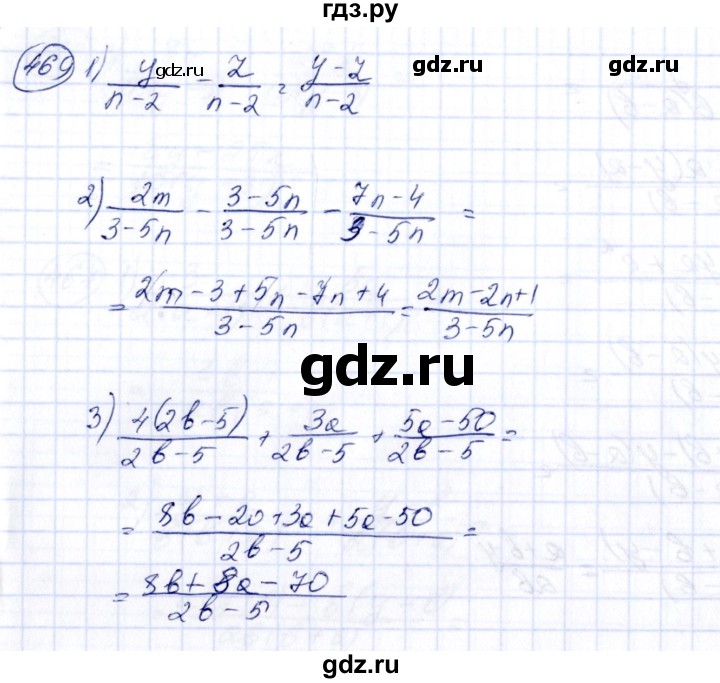 гдз.ру
469 1) y/(n-2) - z/(n-2) = (y-z)/(n-2)
gdz.ru gdz.ru gdz.ru
2) 2m/(3-5n) - (3-5n)/(3-5n) - (7n-4)/(3-5n) =
= (2m-3+5n-7n+4)/(3-5n) = (2m-2n+1)/(3-5n)
gdz.ru
3) 4(2b-5)/(2b-5) + 3a/(2b-5) + (5a-50)/(2b-5) =
= (8b-20+3a+5a-50)/(2b-5) =
= (8b+8a-70)/(2b-5)
gdz.ru